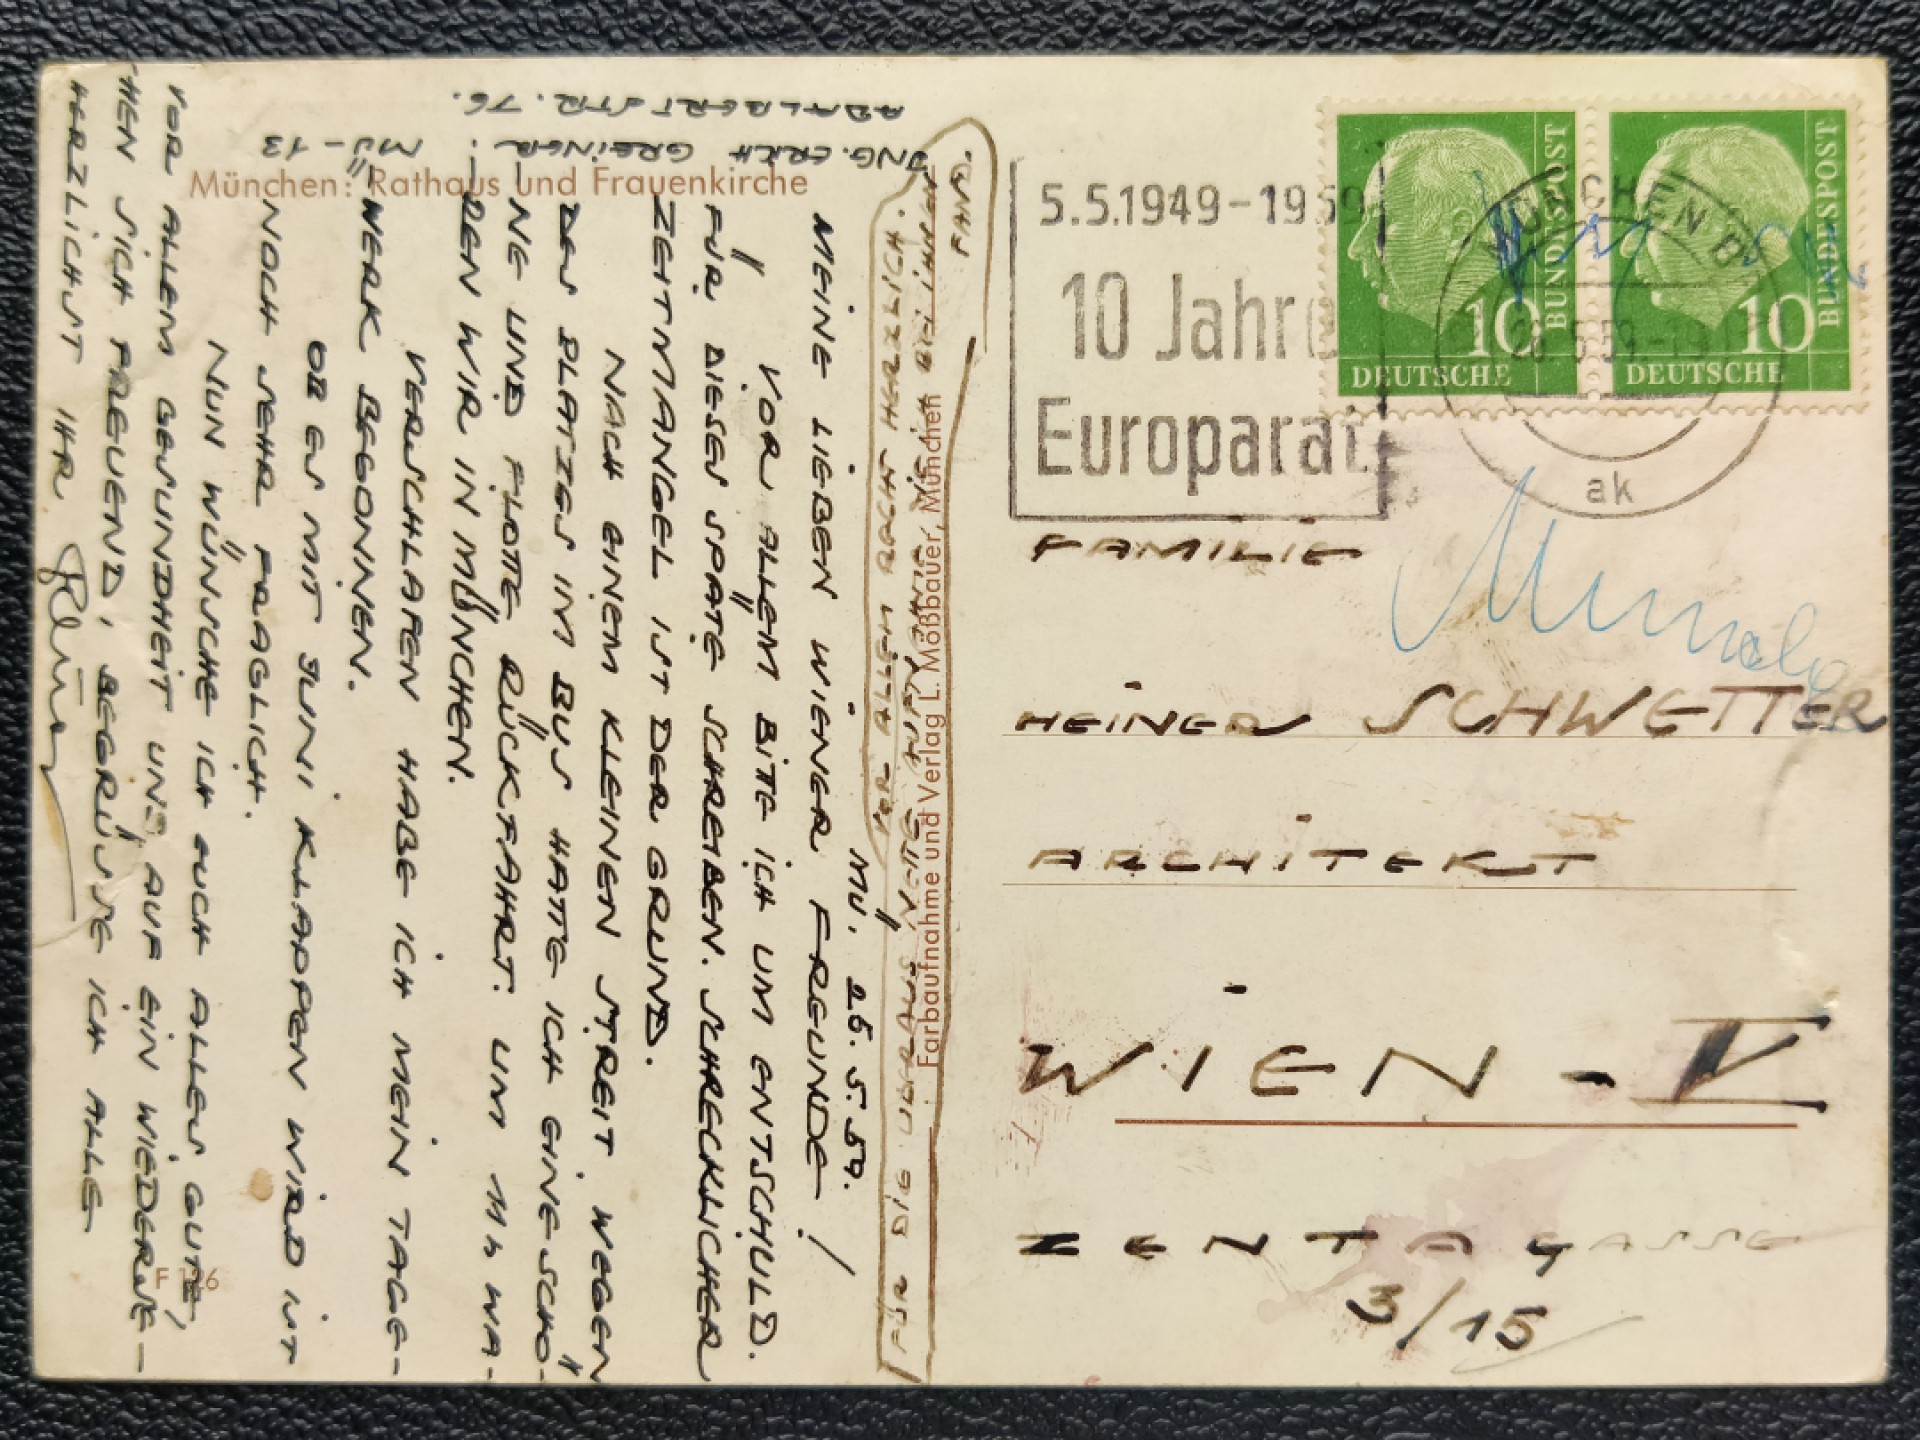 ING. ERICH GREINER MÜ-13
ADALBERTSTR. 76.
München: Rathaus und Frauenkirche
MÜ. 25.5.59.
MEINE LIEBEN WIENER FREUNDE!
VOR ALLEM BITE ICH UM ENTSCHULD.
FÜR DIESES SPÄTE SCHREIBEN. SCHRECKLICHER
ZEITMANGEL IST DER GRUND.
NACH EINEM KLEINEN STREIT WEGEN
DES PLATZES IM BUS HATTE ICH EINE SCHÖ-
NE UND FLOTTE RÜCKFAHRT. UM
DEN WIR IN MÜNCHEN.
VERSCHLAFEN HABE ICH MEIN TAGE-
WERK BEGONNEN.
OB ES MIT JUNI KLAPPEN WIRD IST
NOCH SEHR FRAGLICH.
NUN WÜNSCHE ICH EUCH ALLES GUTE,
VOR ALLEM GESUNDHEIT UND, AUF EIN WIEDERSE-
HEN SICH FREUEND, BEGRÜSSE ICH ALLE
HERZLICHST IHR
F 126
Farbaufnahme und Verlag L. Mößbauer, München
5.5.1949-1959
10 Jahre
Europarat
MÜNCHEN
5.59
ak
10
DEUTSCHE
BUNDESPOST
10
DEUTSCHE
BUNDESPOST
FAMILIE
HEINER SCHWETTER
ARCHITEKT
WIEN - V
ZENTAGASSE
3/15